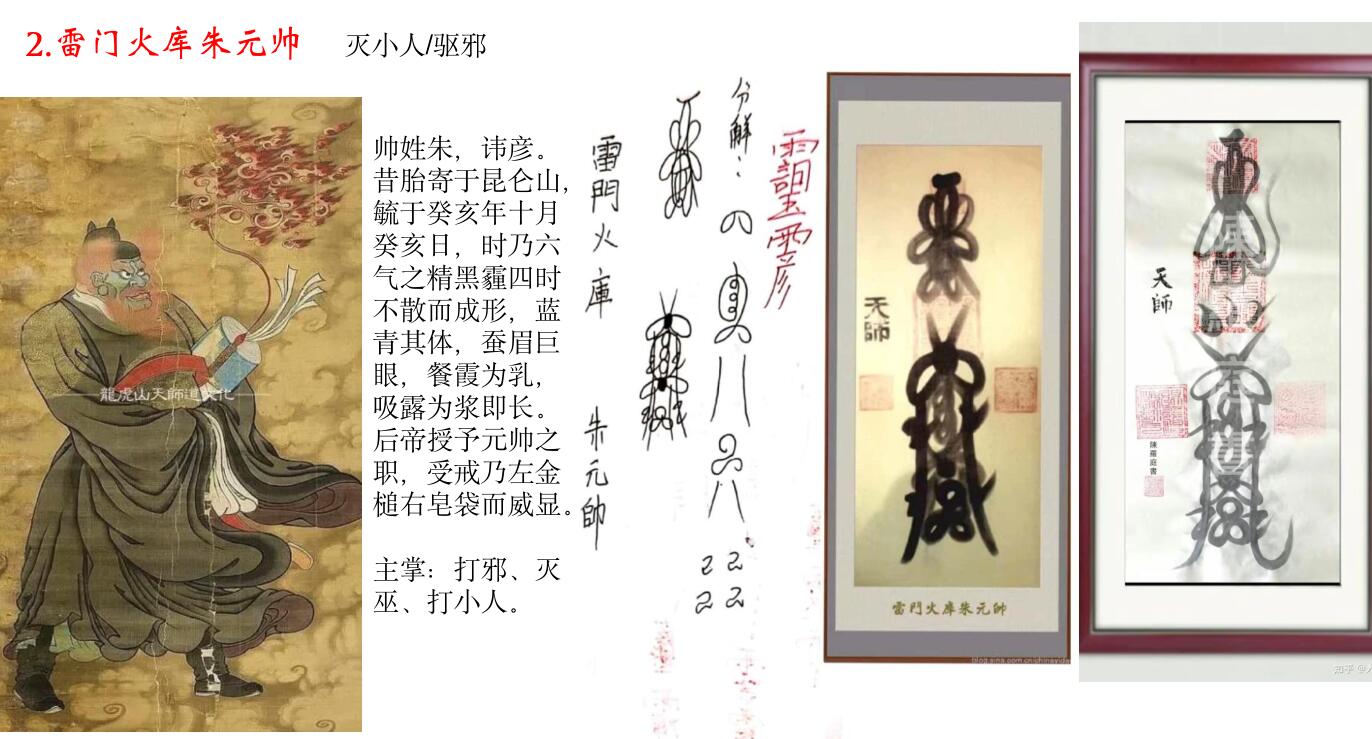 2.雷门火库朱元帅
灭小人/驱邪
龍虎山天師道文化
帅姓朱，讳彦。
昔胎寄于昆仑山，
毓于癸亥年十月
癸亥日，时乃六
气之精黑霾四时
不散而成形，蓝
青其体，蚕眉巨
眼，餐霞为乳，
吸露为浆即长。
后帝授予元帅之
职，受戒乃左金
槌右皂袋而威显。
主掌：打邪、灭
巫、打小人。
雷門火庫 朱元帥
分解：
天師
雷門火库朱元帥
天師
陳羅庭書
知乎